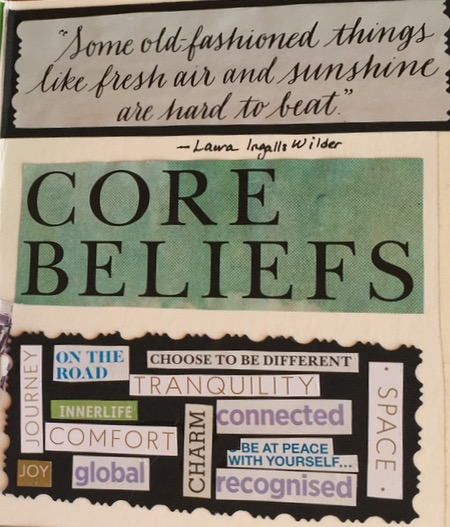 "Some old-fashioned things
like fresh air and sunshine
are hard to beat."
—Laura Ingalls Wilder
CORE
BELIEFS
JOURNEY
ON THE
ROAD
CHOOSE TO BE DIFFERENT
TRANQUILITY
INNERLIFE
COMFORT
JOY
global
CHARM
connected
BE AT PEACE
WITH YOURSELF...
recognised
· SPACE ·